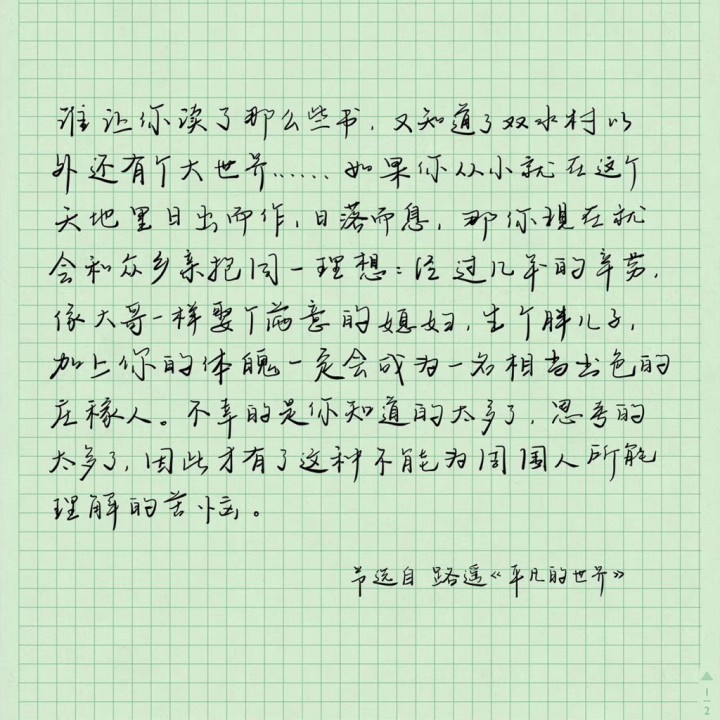 谁让你读了那么些书，又知道了双水村以
外还有个大世界……如果你从小就在这个
天地里日出而作，日落而息，那你现在就
会和众乡亲抱同一理想：经过几年的辛劳，
像大哥一样娶个满意的媳妇，生个胖儿子，
加上你的体魄一定会成为一名相当出色的
庄稼人。不幸的是你知道的太多了，思考的
太多了，因此才有了这种不能为周围人所能
理解的苦恼。
节选自 路遥《平凡的世界》
1
2